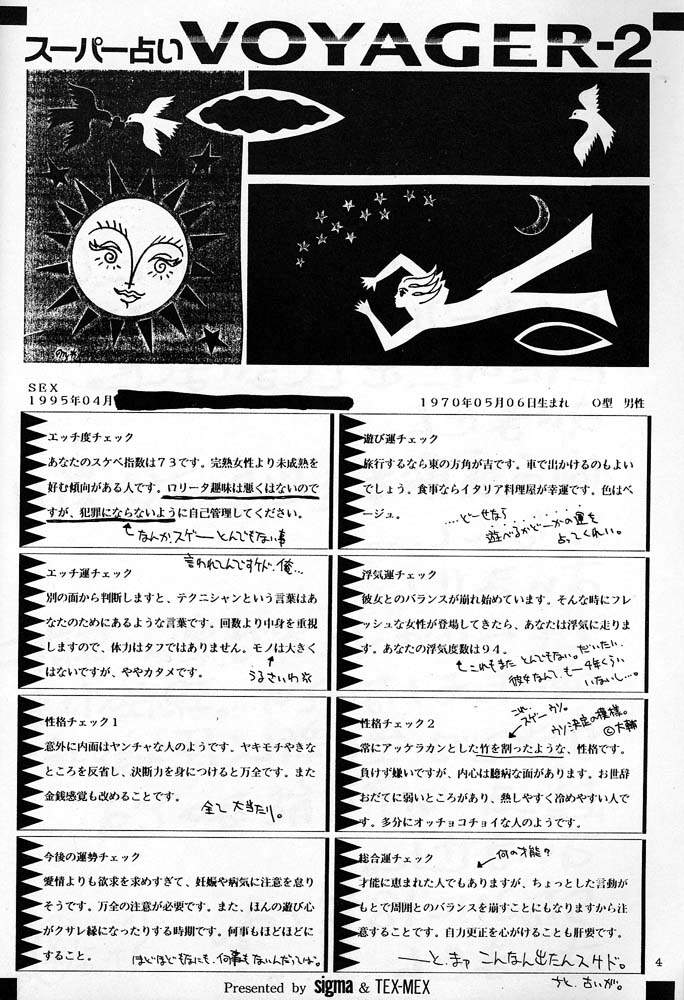 スーパー占い VOYAGER-2
SEX
1995年04月
1970年05月06日生まれ O型 男性
エッチ度チェック
あなたのスケベ指数は73です。完熟女性より未成熟を
好む傾向がある人です。ロリータ趣味は悪くはないので
すが、犯罪にならないように自己管理してください。
なんか、スゲーとんでもない事
言われてんですケド、俺…
遊び運チェック
旅行するなら東の方角が吉です。車で出かけるのもよい
でしょう。食事ならイタリア料理屋が幸運です。色はベ
ージュ。
…どーせなら
遊べるかどーかの運を
占ってくれい。
エッチ運チェック
別の面から判断しますと、テクニシャンという言葉はあ
なたのためにあるような言葉です。回数より中身を重視
しますので、体力はタフではありません。モノは大きく
はないですが、ややカタメです。
うるさいわ
浮気運チェック
彼女とのバランスが崩れ始めています。そんな時にフレ
ッシュな女性が登場してきたら、あなたは浮気に走りま
す。あなたの浮気度数は94。
これもまた とんでもない。だいたい、
彼女なんて、も一4年くらい
いないし…。
性格チェック1
意外に内面はヤンチャな人のようです。ヤキモチやきな
ところを反省し、決断力を身につけると万全です。また
金銭感覚も改めることです。
全て 大当たり。
性格チェック2
これ、
スゲー ウソ。
ウソ決定の模様。
©大輔
常にアッケラカンとした竹を割ったような、性格です。
負けず嫌いですが、内心は臆病な面があります。お世辞
おだてに弱いところがあり、熱しやすく冷めやすい人で
す。多分にオッチョコチョイな人のようです。
今後の運勢チェック
愛情よりも欲求を求めすぎて、妊娠や病気に注意を怠り
そうです。万全の注意が必要です。また、ほんの遊び心
がクサレ縁になったりする時期です。何事もほどほどに
すること。
ほどほどもなにも、何事もないんだってば。
総合運チェック
何の才能?
才能に恵まれた人でもありますが、ちょっとした言動が
もとで周囲とのバランスを崩すことにもなりますから注
意することです。自力更正を心がけることも肝要です。
――と、まァ こんなん出たんスケド。
ちと、古いが。
4
Presented by sigma & TEX-MEX